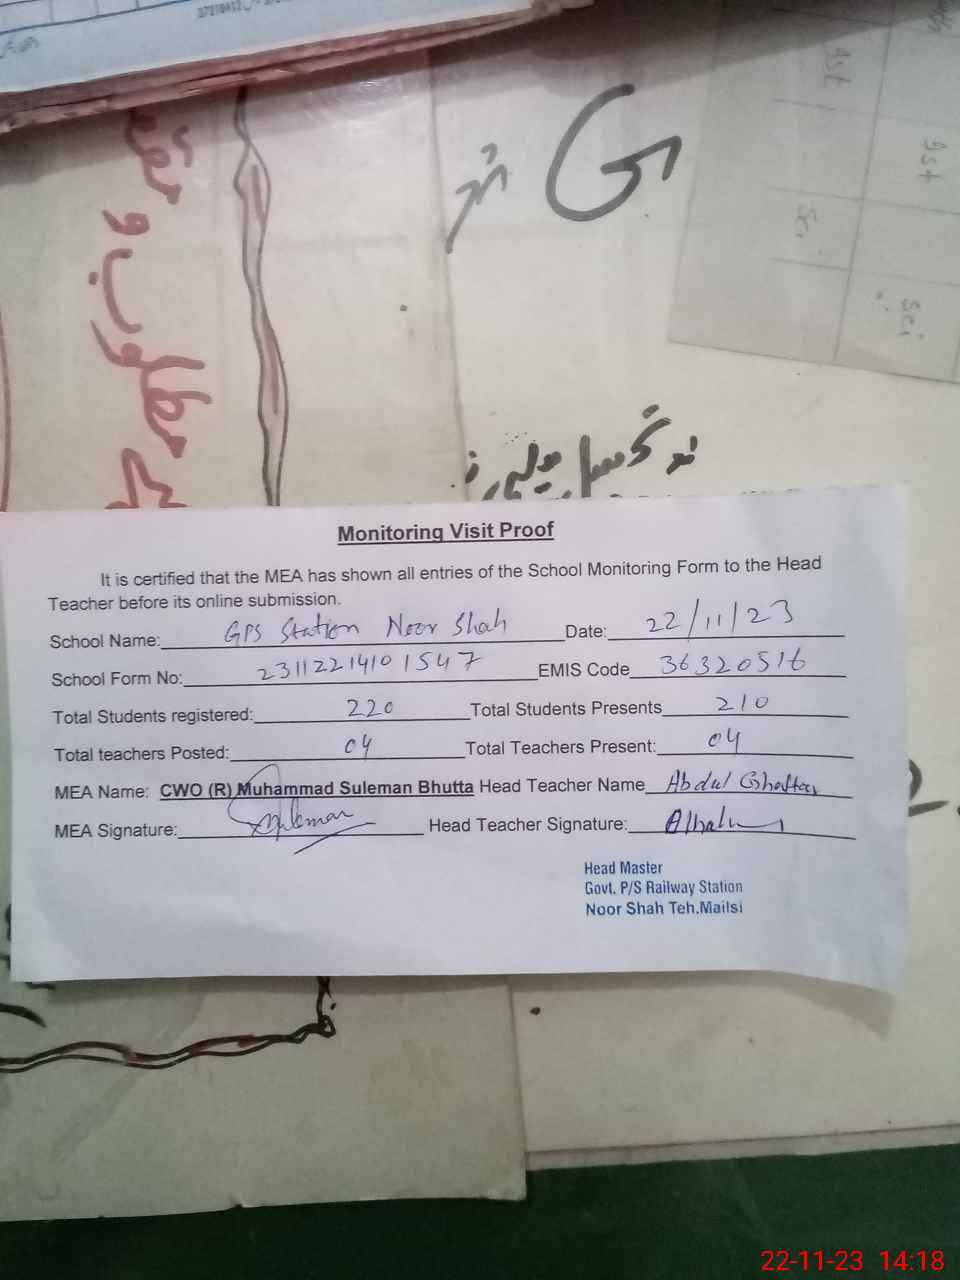 G
Monitoring Visit Proof
It is certified that the MEA has shown all entries of the School Monitoring Form to the Head
Teacher before its online submission.
School Name: GPS Station Noor Shah Date: 22/11/23
School Form No: 23112214101547 EMIS Code 36320516
Total Students registered: 220 Total Students Presents 210
Total teachers Posted: 04 Total Teachers Present: 04
MEA Name: CWO (R) Muhammad Suleman Bhutta Head Teacher Name Abdul Ghaffar
MEA Signature: Suleman Head Teacher Signature:
Head Master
Govt. P/S Railway Station
Noor Shah Teh.Mailsi
22-11-23 14:18